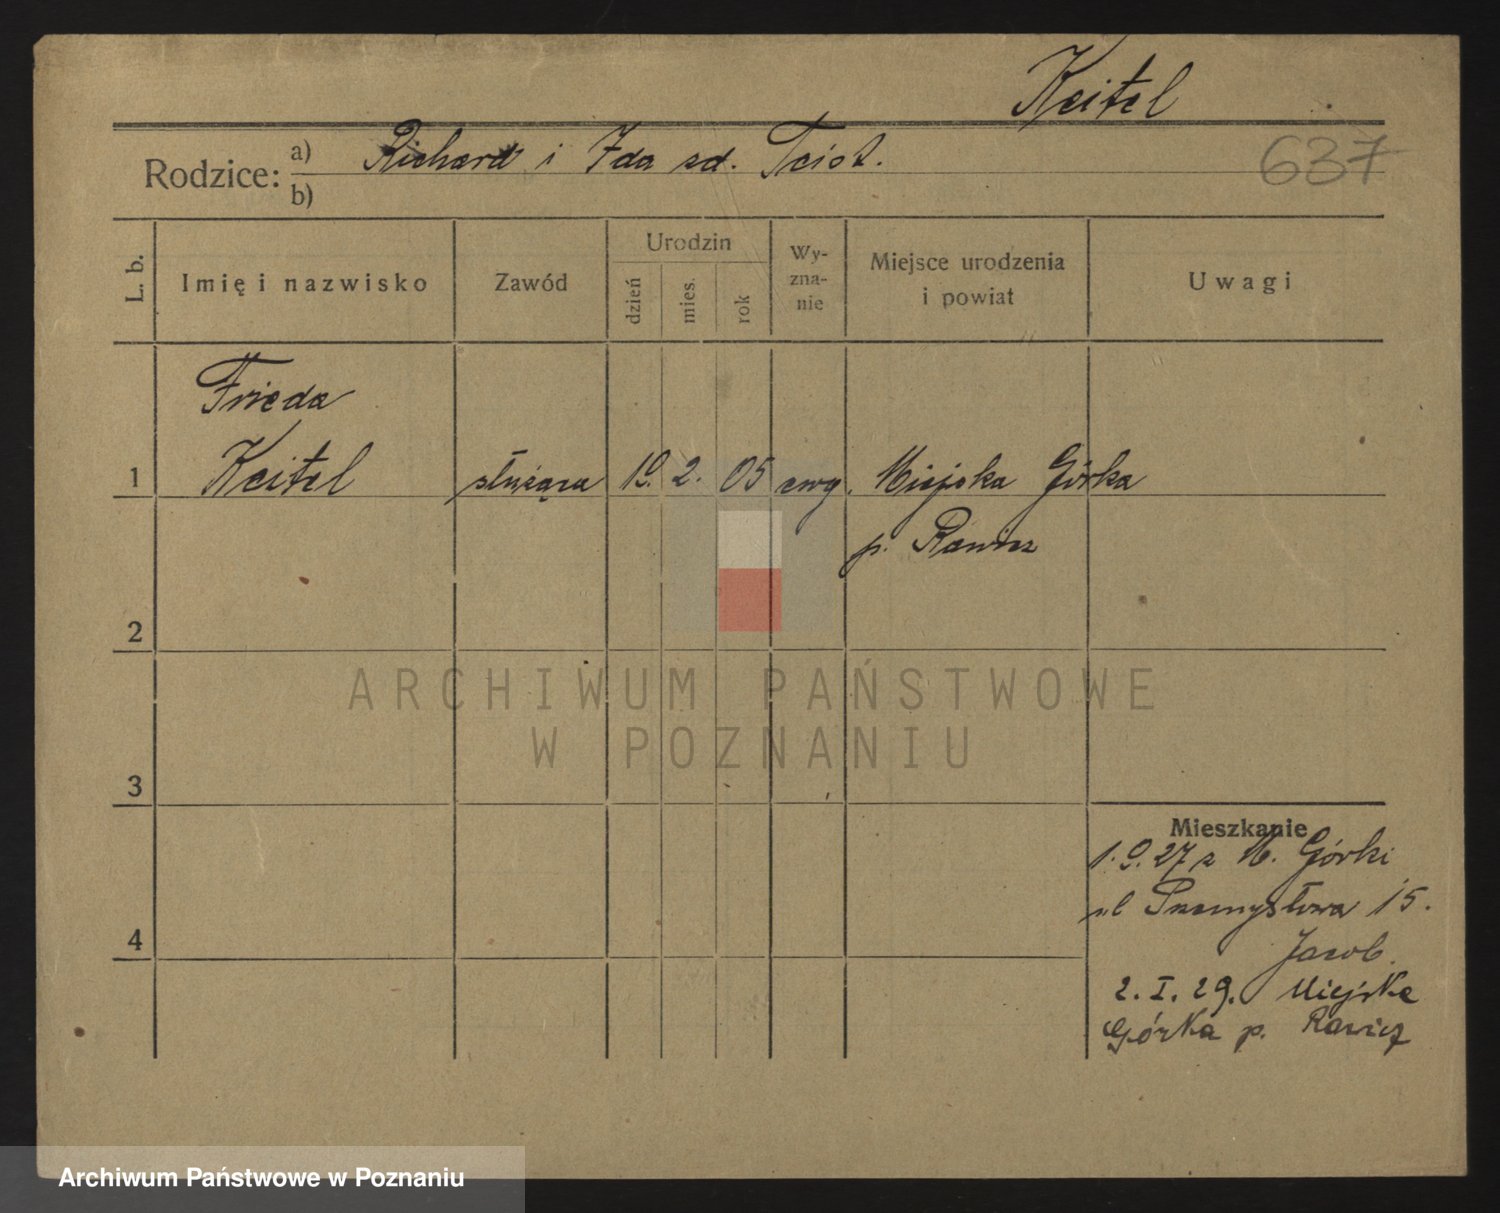 Keitel
637
Rodzice: a) Richard i Ida zd. Teist.
b)
L. b.
Imię i nazwisko
Zawód
Urodzin
dzień
mies.
rok
Wy-
zna-
nie
Miejsce urodzenia
i powiat
Uwagi
Frieda
1 Keitel służąca 19. 2. 05 ewg. Miejska Górka
p. Rawicz
2
ARCHIWUM PAŃSTWOWE
W POZNANIU
3
Mieszkanie
1. 9. 27 z M. Górki
ul Przemysłowa 15.
Jacob.
4
2. I. 29. Miejska
Górka p. Rawicz
Archiwum Państwowe w Poznaniu